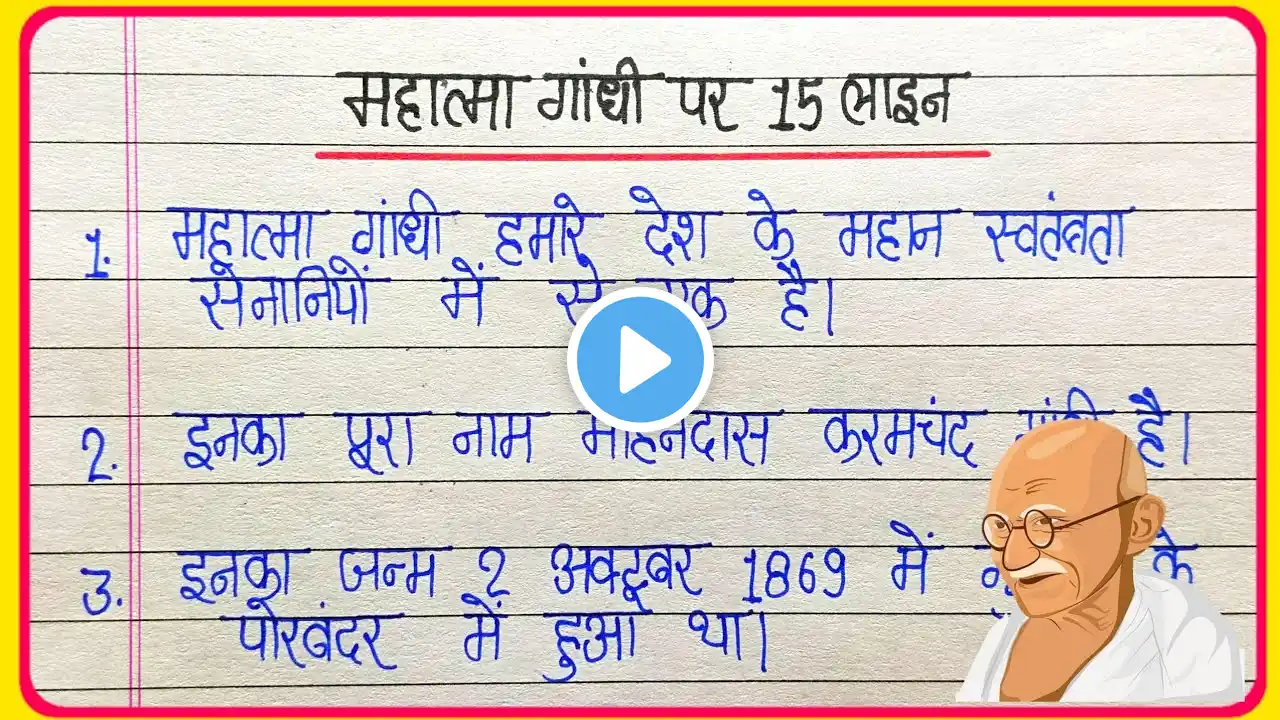 महात्मा गांधी पर 15 लाइन
1. महात्मा गांधी हमारे देश के महान स्वतंत्रता
सेनानियों में से एक है।
2. इनका पूरा नाम मोहनदास करमचंद गांधी है।
3. इनका जन्म 2 अक्टूबर 1869 में के
पोरबंदर में हुआ था।